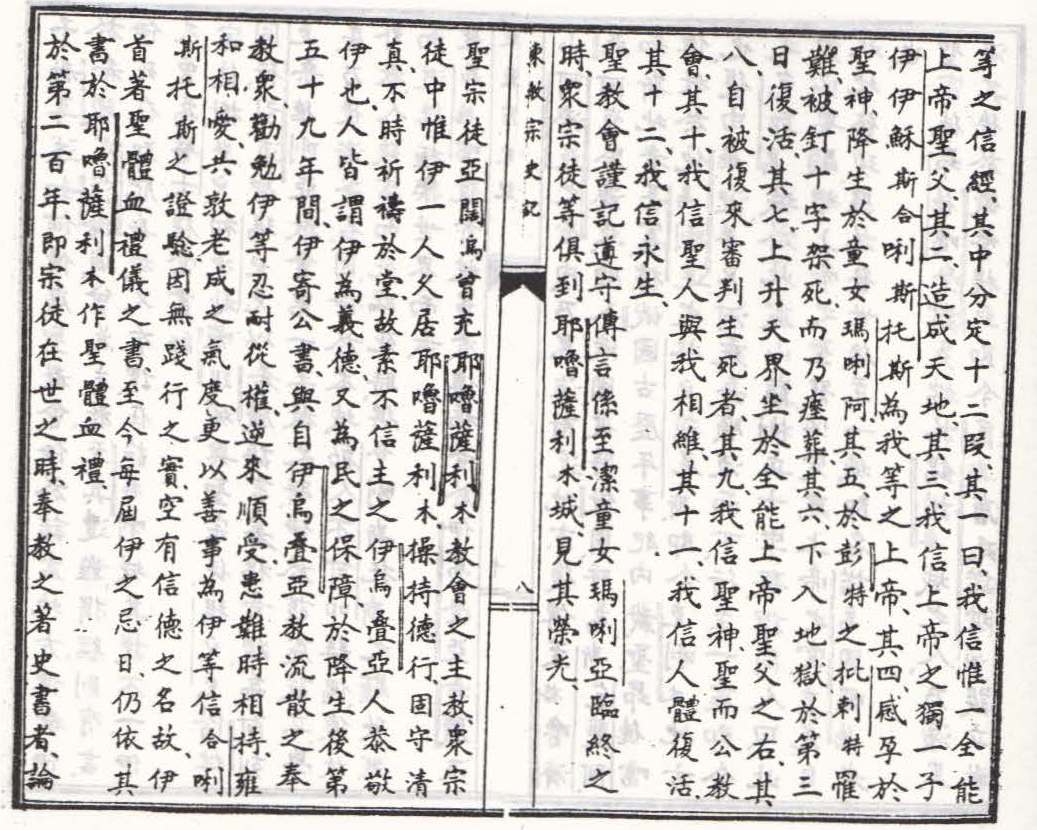 等之信經、其中分定十二段、其一曰、我信惟一全能
上帝聖父、其二造成天地、其三、我信上帝之獨一子
伊伊穌斯合唎斯托斯為我等之上帝、其四、感孕於
聖神、降生於童女瑪唎阿、其五、於彭特之批剌特罹
難、被釘十字架死、而乃瘞葬、其六、下入地獄於第三
日、復活、其七、上升天界、坐於全能上帝聖父之右、其
八、自彼復來審判生死者、其九、我信聖神、聖而公教
會、其十、我信聖人與我相維、其十一、我信人體復活、
其十二、我信永生、
聖教會謹記遵守傳言、係至潔童女瑪唎亞臨終之
時、眾宗徒等俱到耶嚕薩利木城、見其榮光、
東教宗史記
八
聖宗徒亞闊烏曾充耶嚕薩利木教會之主教、眾宗
徒中惟伊一人久居耶嚕薩利木、操持德行、固守清
真、不時祈禱於堂、故素不信主之伊烏疊亞人、恭敬
伊也、人皆謂伊為義德、又為民之保障、於降生後第
五十九年間、伊寄公書、與自伊烏疊亞教流散之奉
教眾、勸勉伊等忍耐從權、逆來順受、患難時相持、雍
和相愛、共敦老成之氣度、更以善事為伊等信合唎
斯托斯之證驗、因無踐行之實、空有信德之名、故伊
首著聖體血禮儀之書、至今每屆伊之忌日、仍依其
書於耶嚕薩利木作聖體血禮、
於第二百年、即宗徒在世之時、奉教之著史書者、論